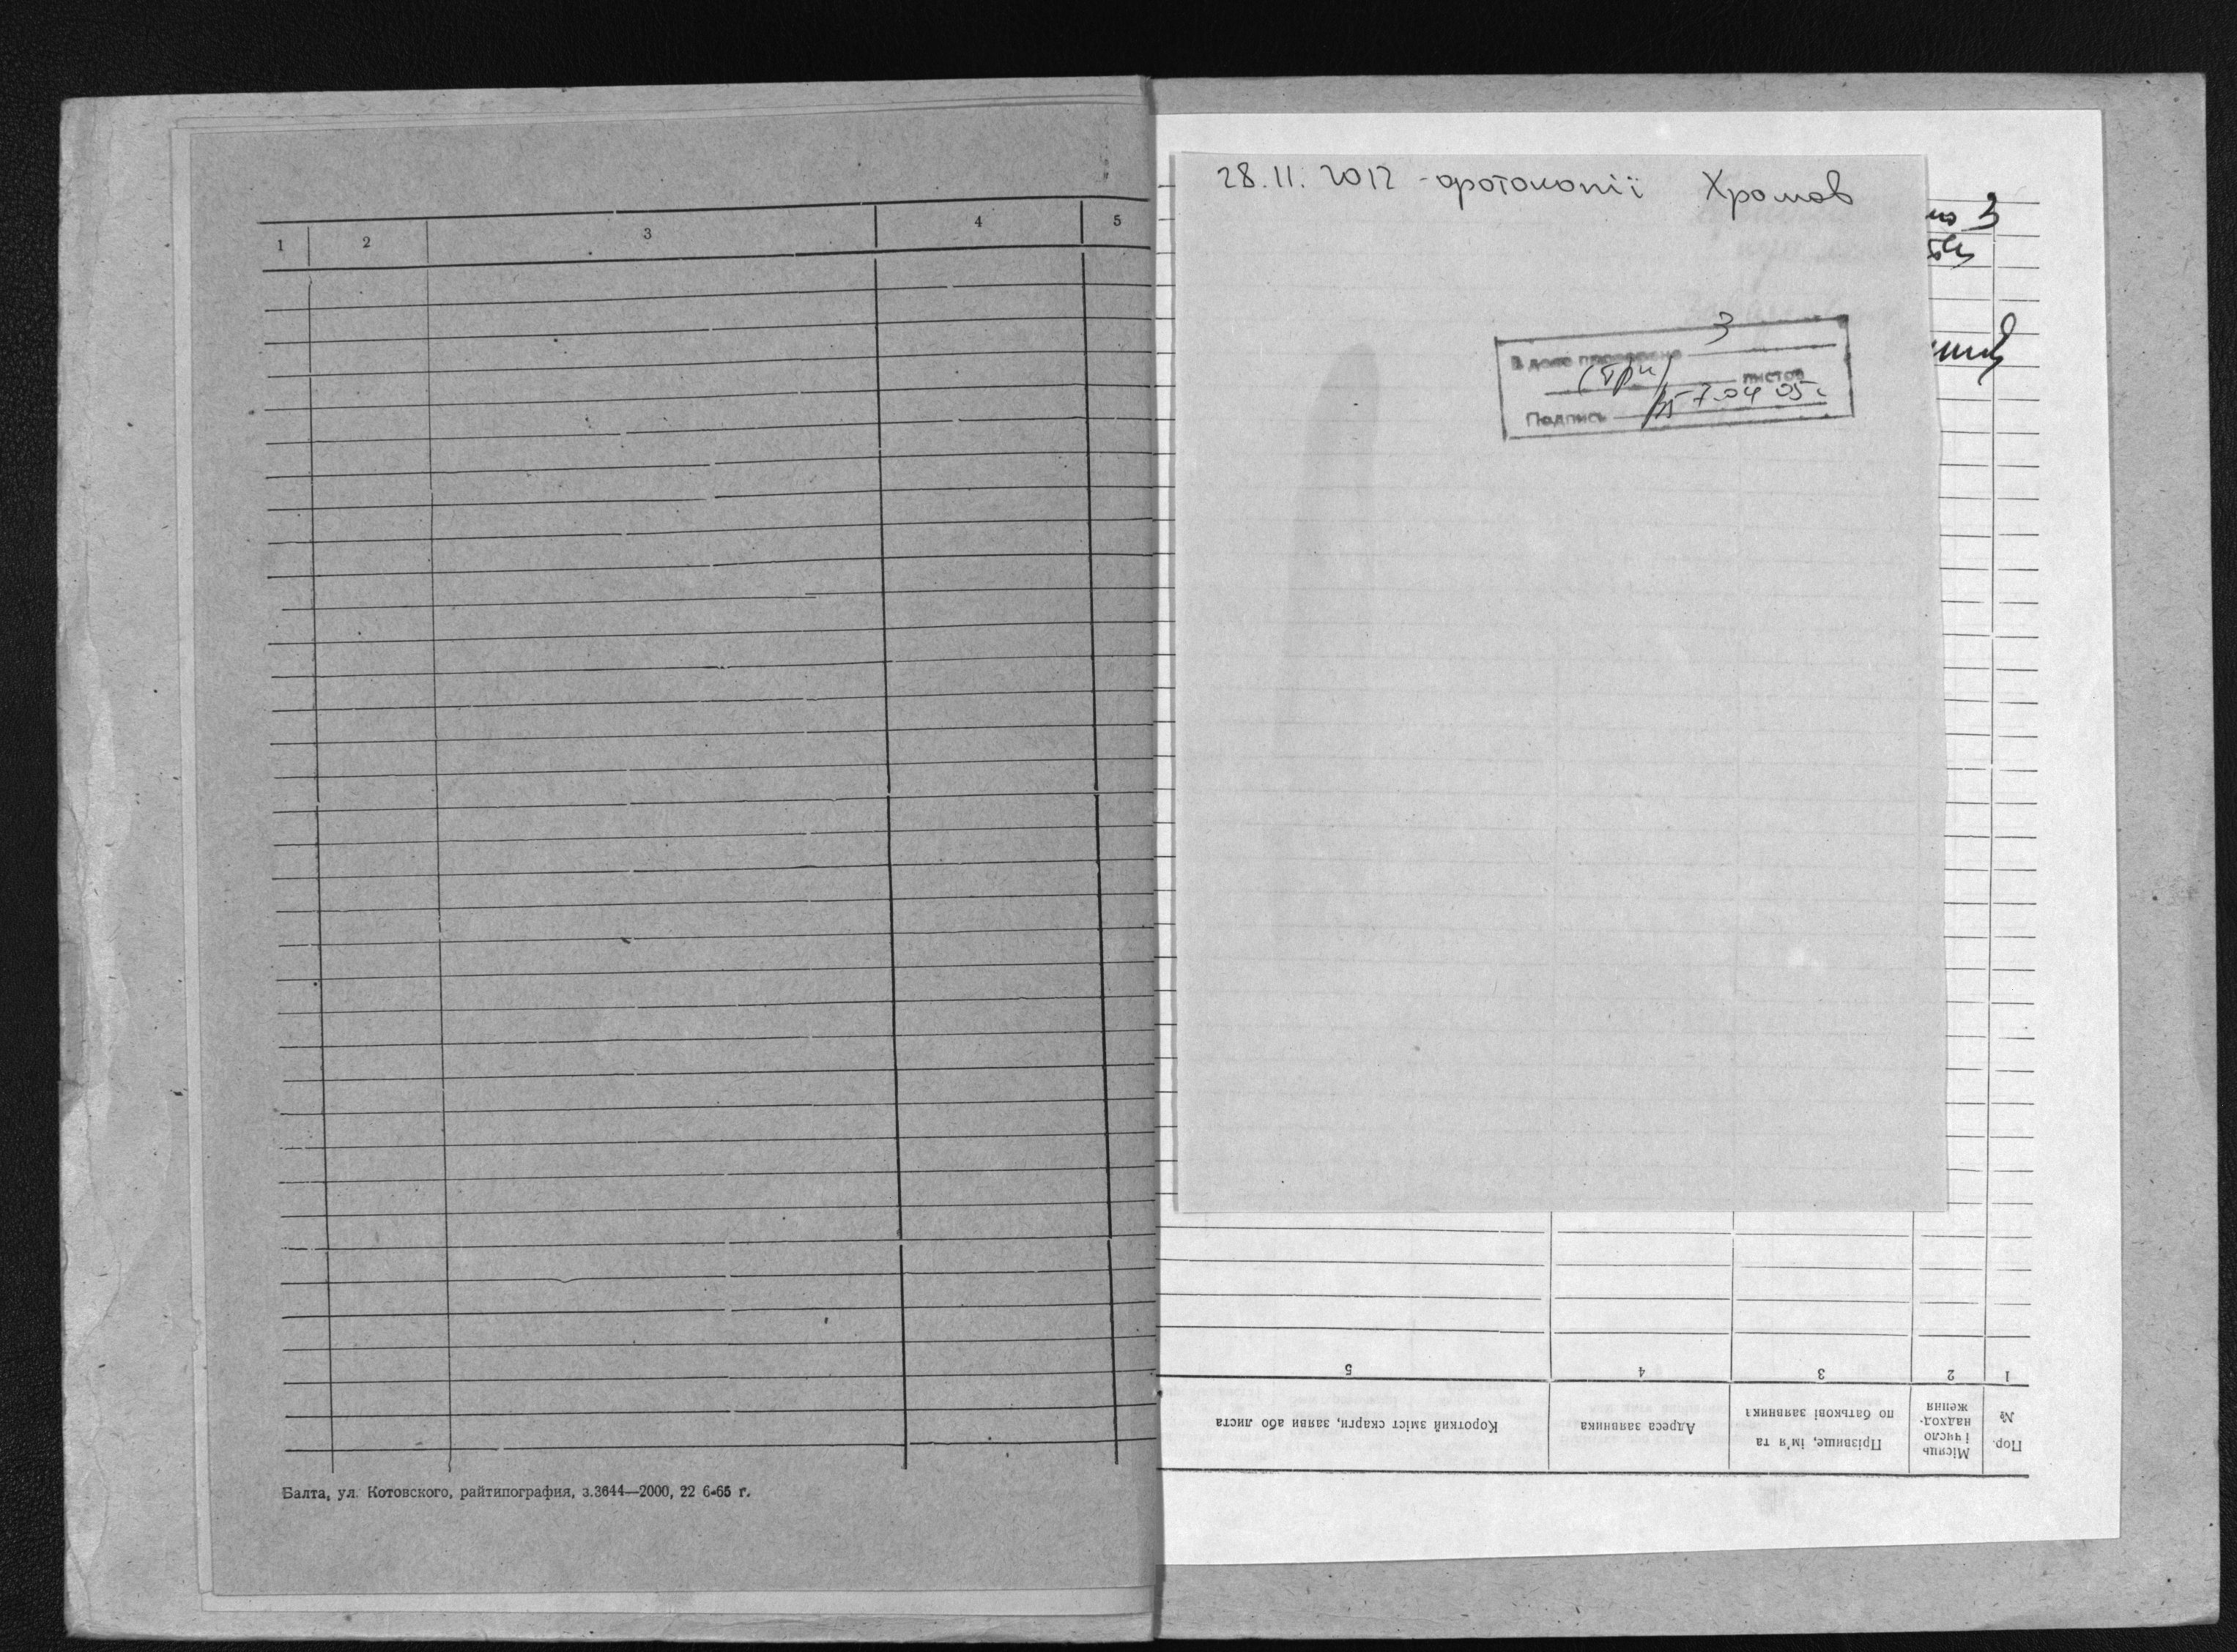 1 2 3 4 5
Балта, ул. Котовского, райтипография, з.3644—2000, 22 6-65 г.
28.11.2012 - фотокопії Хромов
3
В деле
(три) листов
Подпись 7.04 05 г
5 4 3 2 1
Короткий зміст скарги, заяви або листа
Адреса заявника
Прізвище, ім'я та
по батькові заявника
Місяць
і число
надход-
ження
Пор.
№